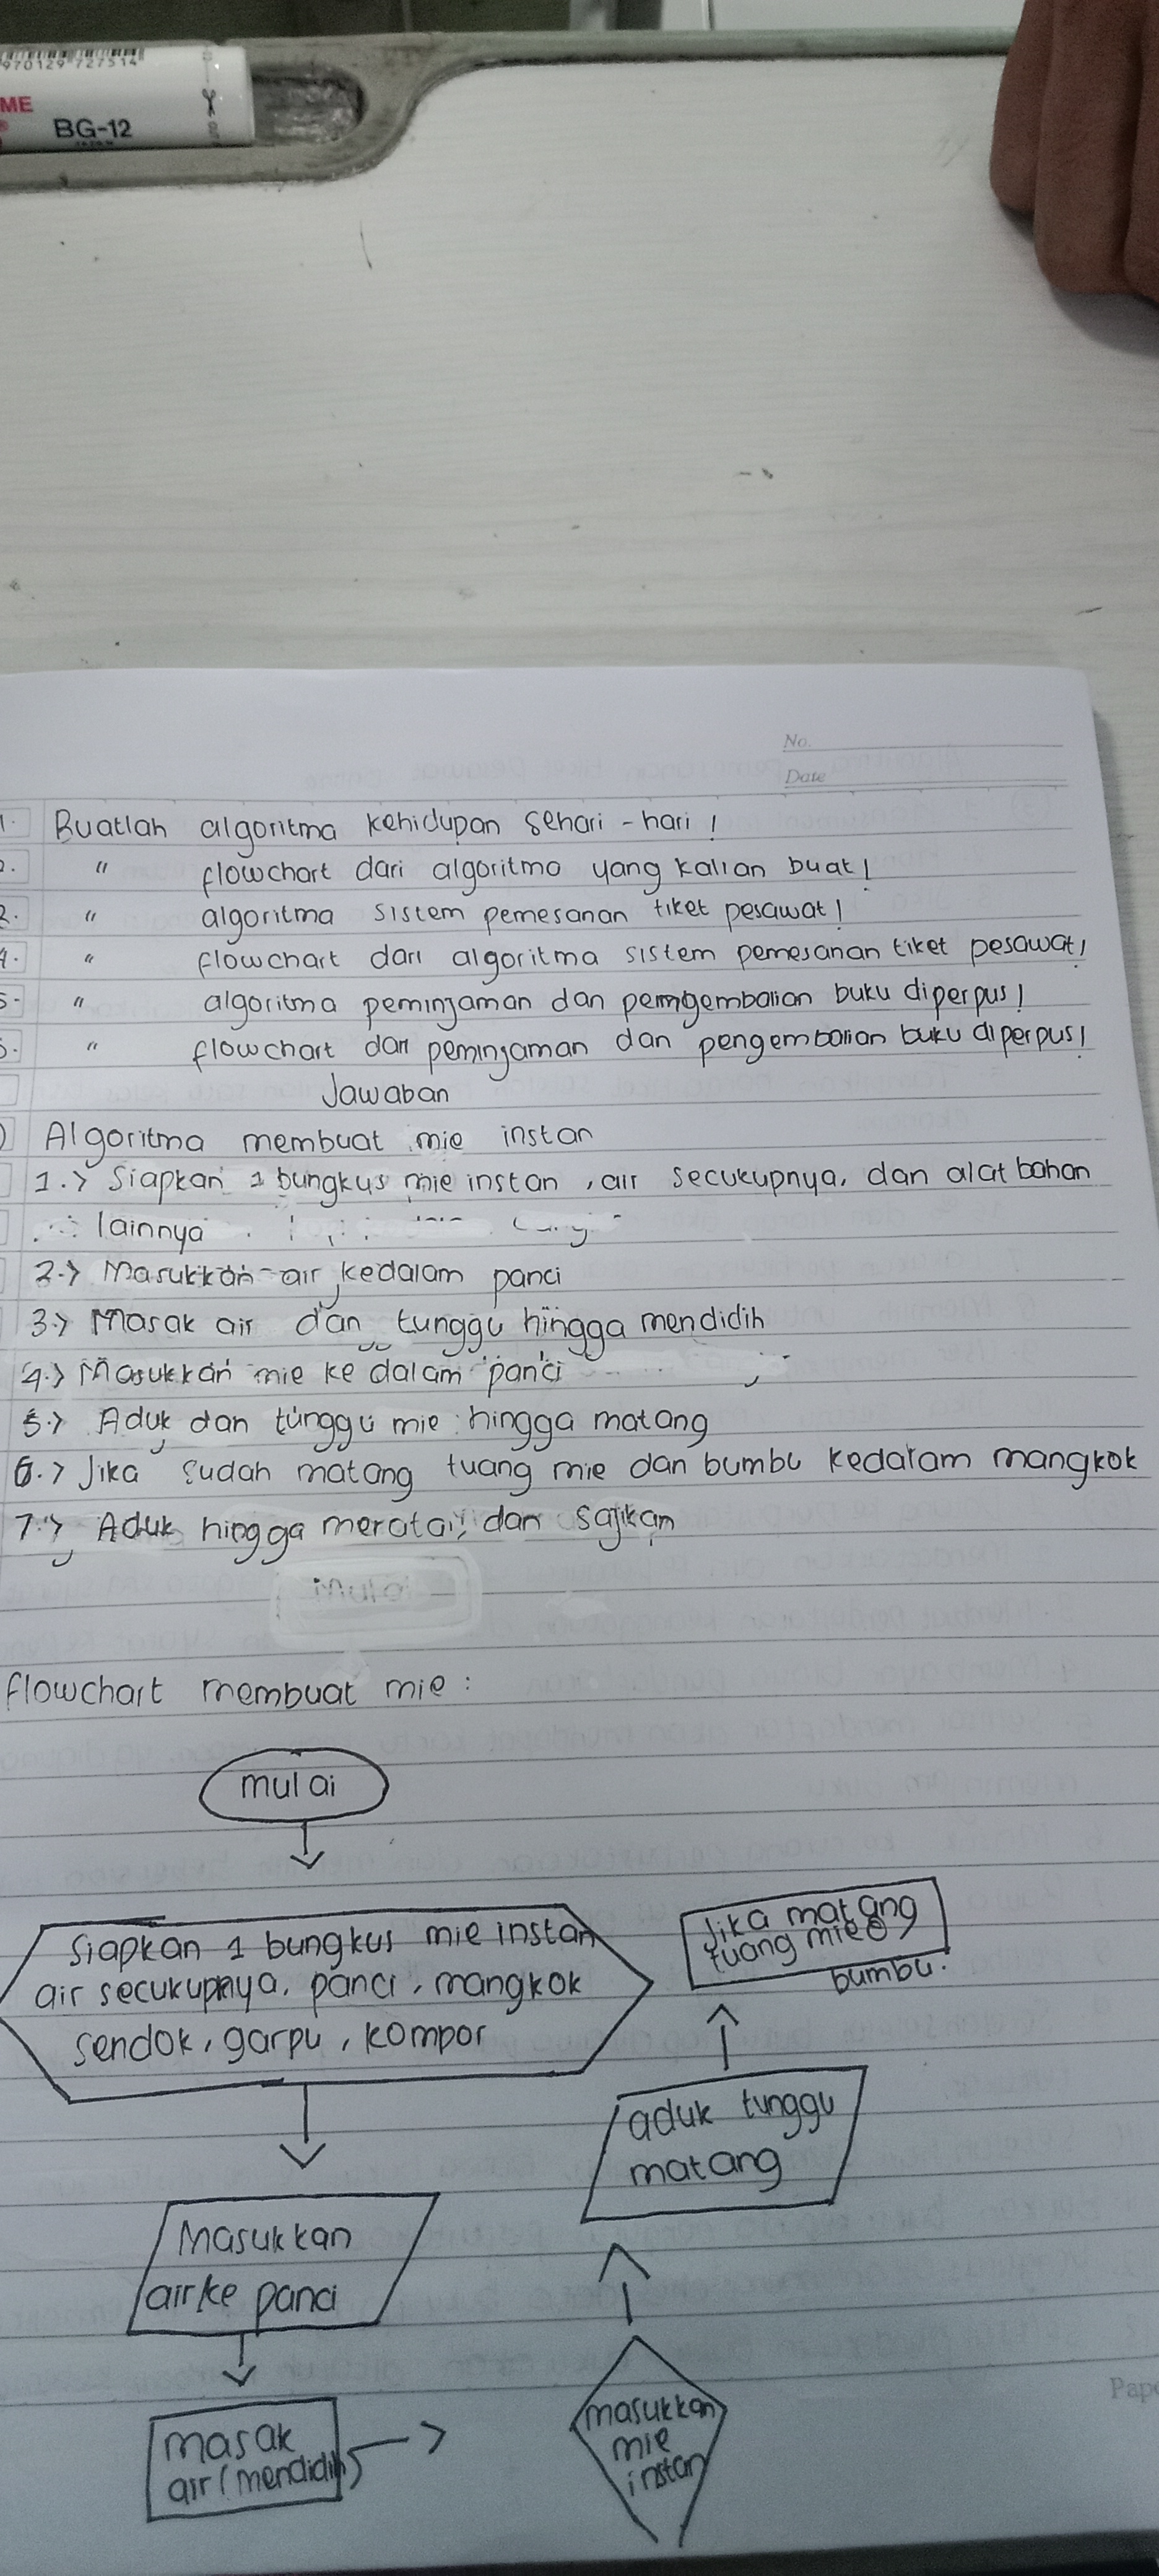 970129 727514
ME
BG-12
No.
Date
1. Buatlah algoritma kehidupan sehari-hari!
2. " flowchart dari algoritma yang kalian buat!
3. " algoritma sistem pemesanan tiket pesawat!
4. " flowchart dari algoritma sistem pemesanan tiket pesawat!
5. " algoritma peminjaman dan pemgembalian buku diperpus!
6. " flowchart dari peminjaman dan pengembalian buku diperpus!
Jawaban
) Algoritma membuat mie instan
1.> Siapkan 1 bungkus mie instan, air secukupnya, dan alat bahan
lainnya
2.> Masukkan air kedalam panci
3.> Masak air dan tunggu hingga mendidih
4.> Masukkan mie ke dalam panci
5.> Aduk dan tunggu mie hingga matang
6.> Jika sudah matang tuang mie dan bumbu kedalam mangkok
7.> Aduk hingga meratai, dan sajikan
Mulai
flowchart membuat mie :
mulai
Siapkan 1 bungkus mie instan
air secukupnya, panci, mangkok
sendok, garpu, kompor
Masukkan
air ke panci
masak
air (mendidih)
masukkan
mie
instan
aduk tunggu
matang
Jika matang
tuang mie &
bumbu.
Pape